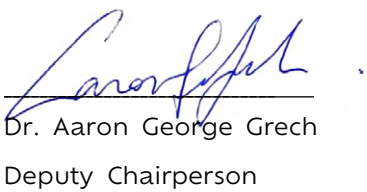 Dr. Aaron George Grech
Deputy Chairperson